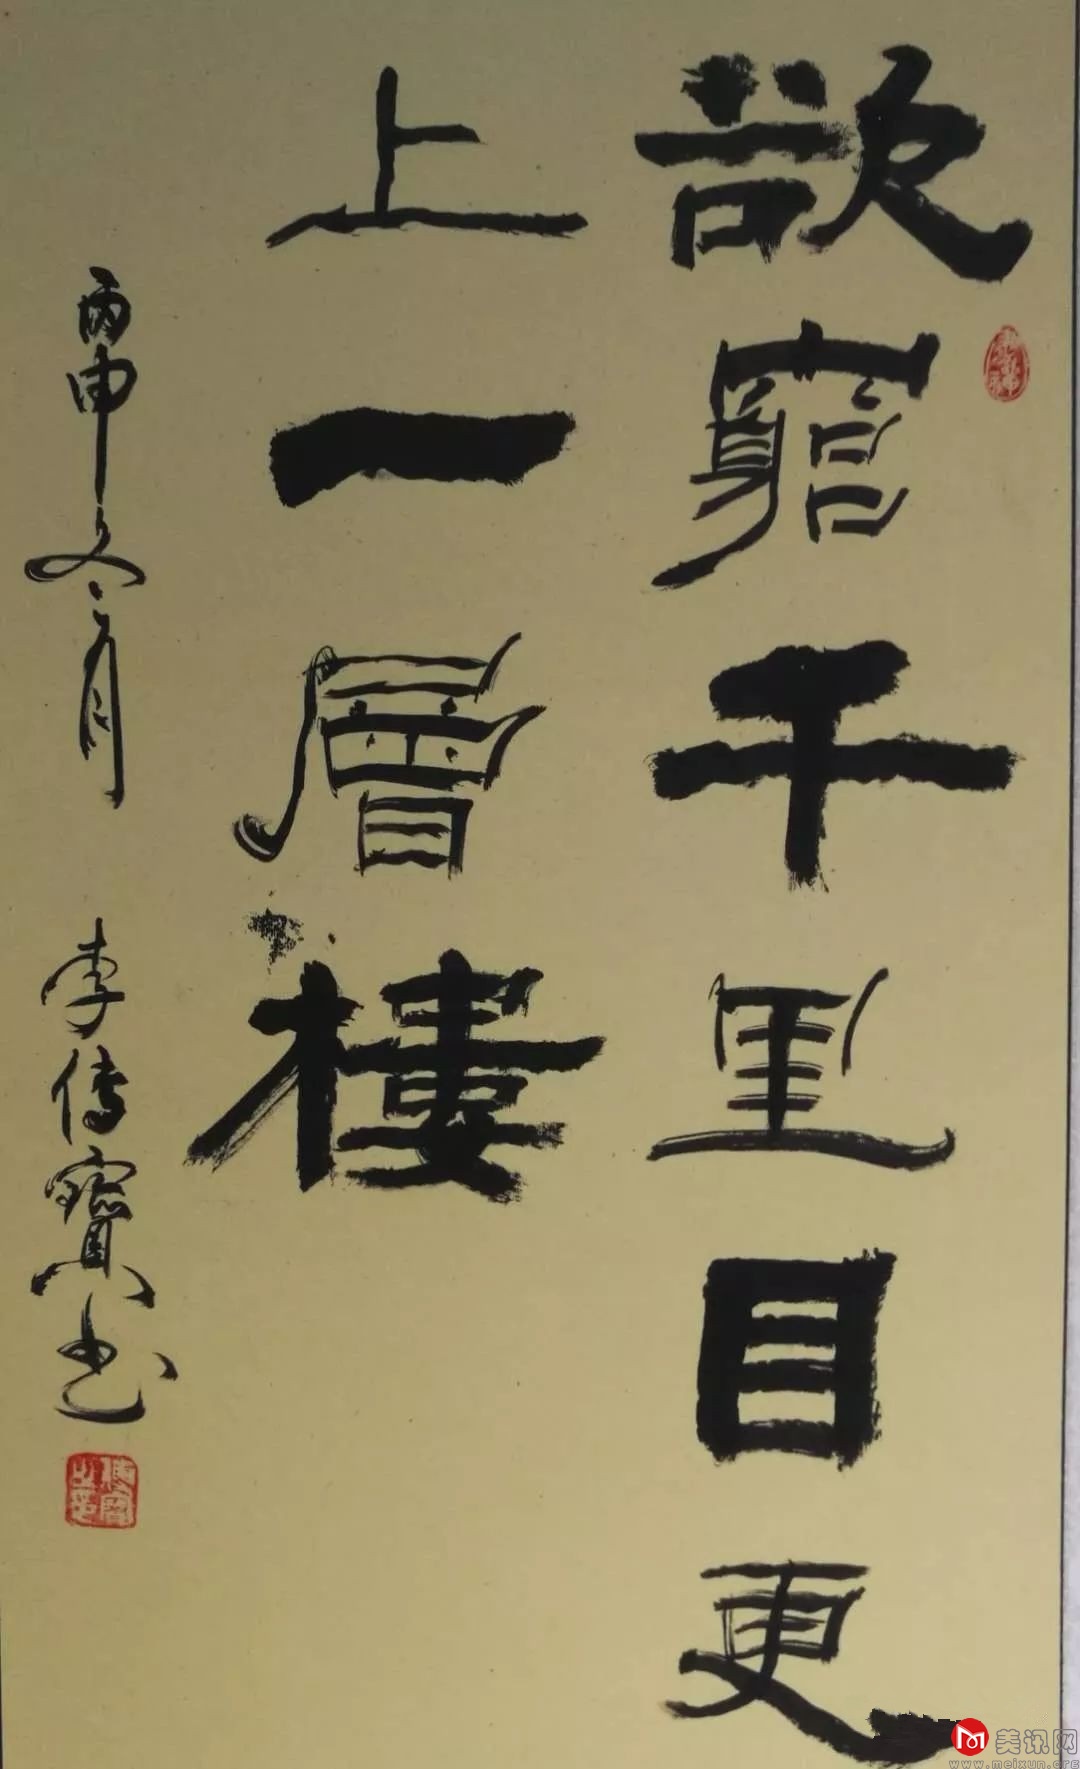 欲窮千里目更
上一層樓
丙申冬月 李傳寶书
美讯网
www.meixun.org